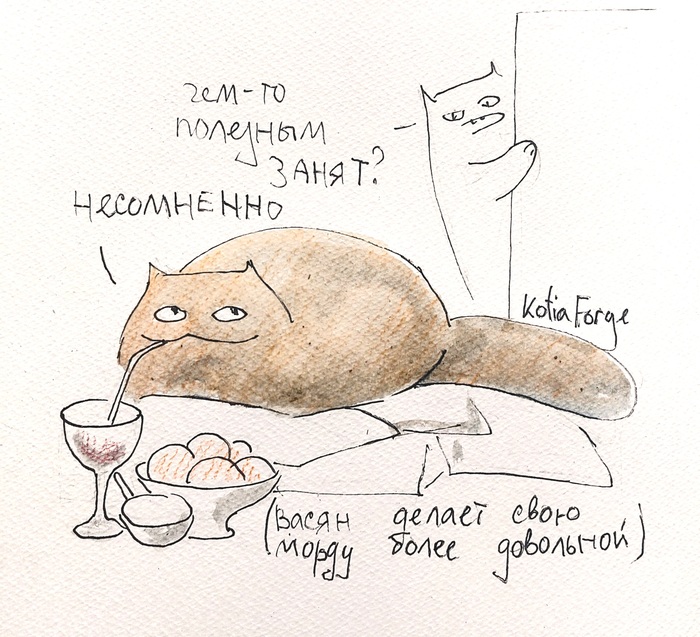 чем-то
полезным
занят?
несомненно
Kotia Forge
(Васян делает свою
морду более довольной)